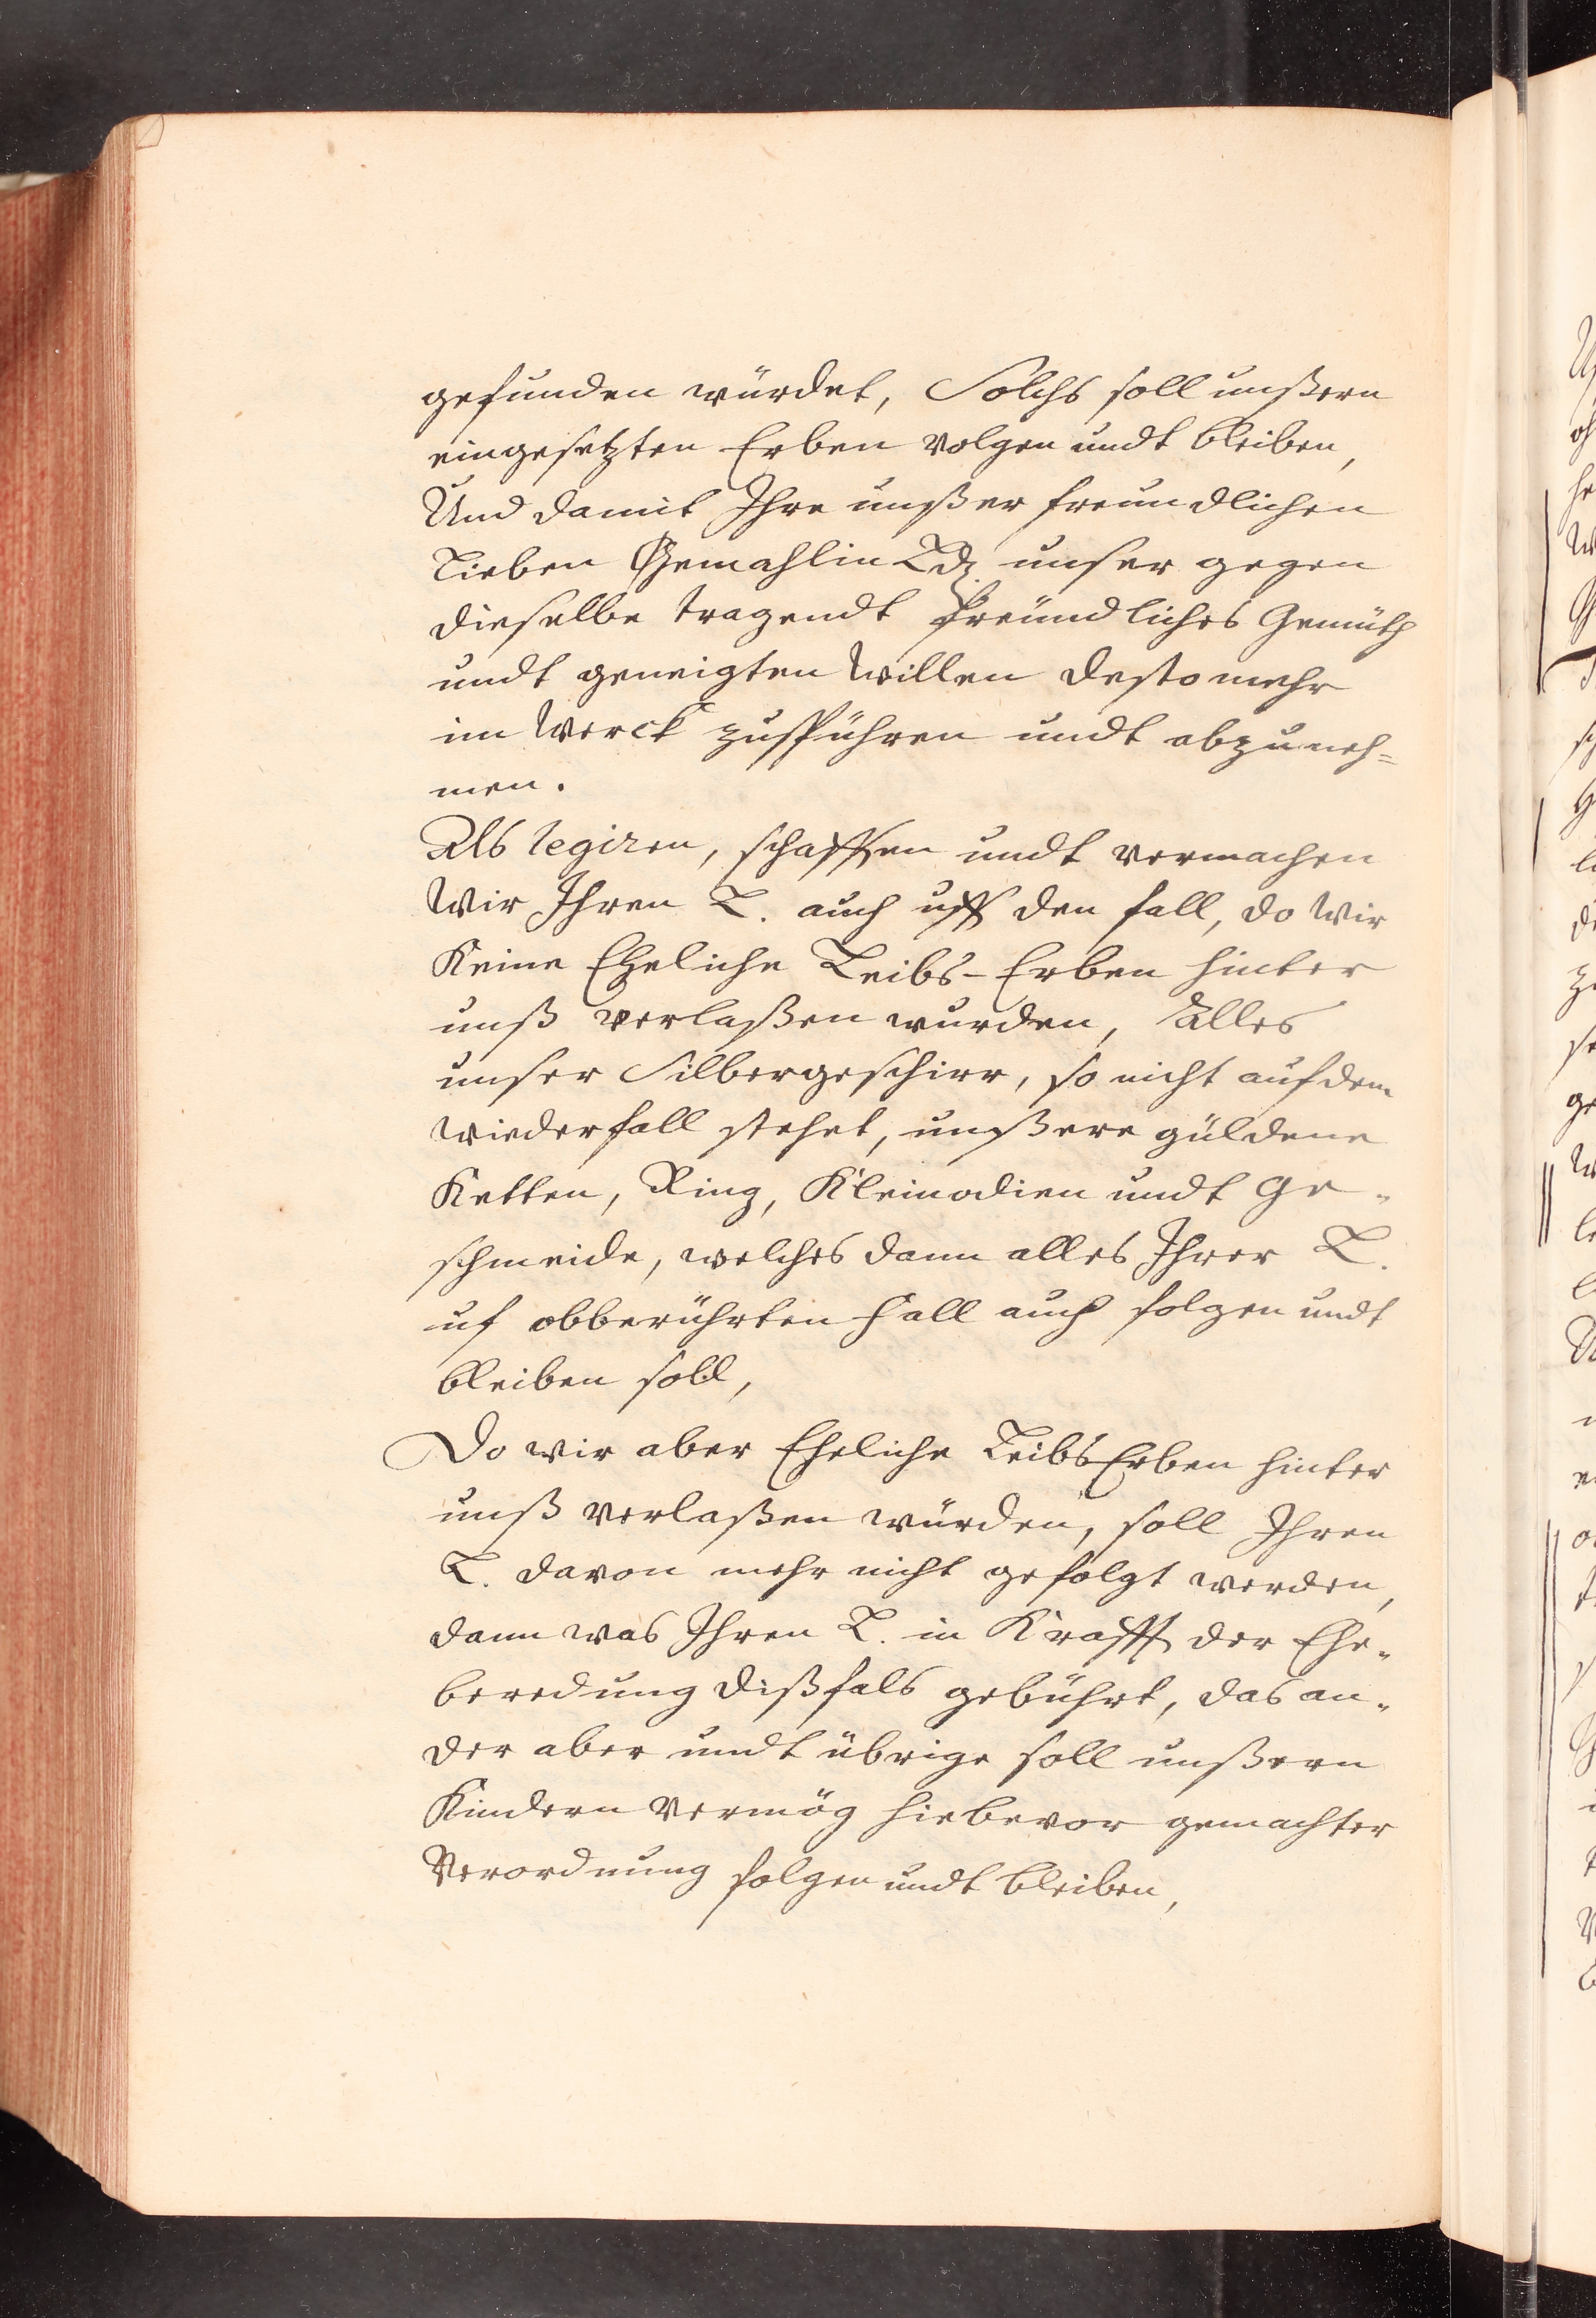 gefunden würdet, Solchs soll unßern
eingesetzten Erben volgen undt bleiben,
Und damit Ihre unßer freundlichen
Lieben Gemahlin Ld. unser gegen
dieselbe tragendt freündliches Gemüth
undt geneigten Willen desto mehr
im Werck zuspühren undt abzuneh=
men.
Als legiren, schaffen undt vermachen
Wir Ihren L. auch uff den fall, do Wir
Keine Eheliche Leibs-Erben hinter
unß verlaßen wurden, Alles
unser Silbergeschirr, so nicht auf dem
wiederfall stehet, unßere güldene
Ketten, Ring, Kleinodien undt Ge-
schmeide, welches dann alles Ihrer L.
uf obberührten Fall auch folgen undt
bleiben soll,
Do wir aber Eheliche Leibs Erben hinter
unß verlaßen würden, soll Ihren
L. davon mehr nicht gefolgt werden,
dann was Ihren L. in Krafft der Ehe-
beredung dißfals gebührt, das an-
der aber undt übrige soll unßern
Kindern vermög hiebevor gemachter
Verordnung folgen undt bleiben,